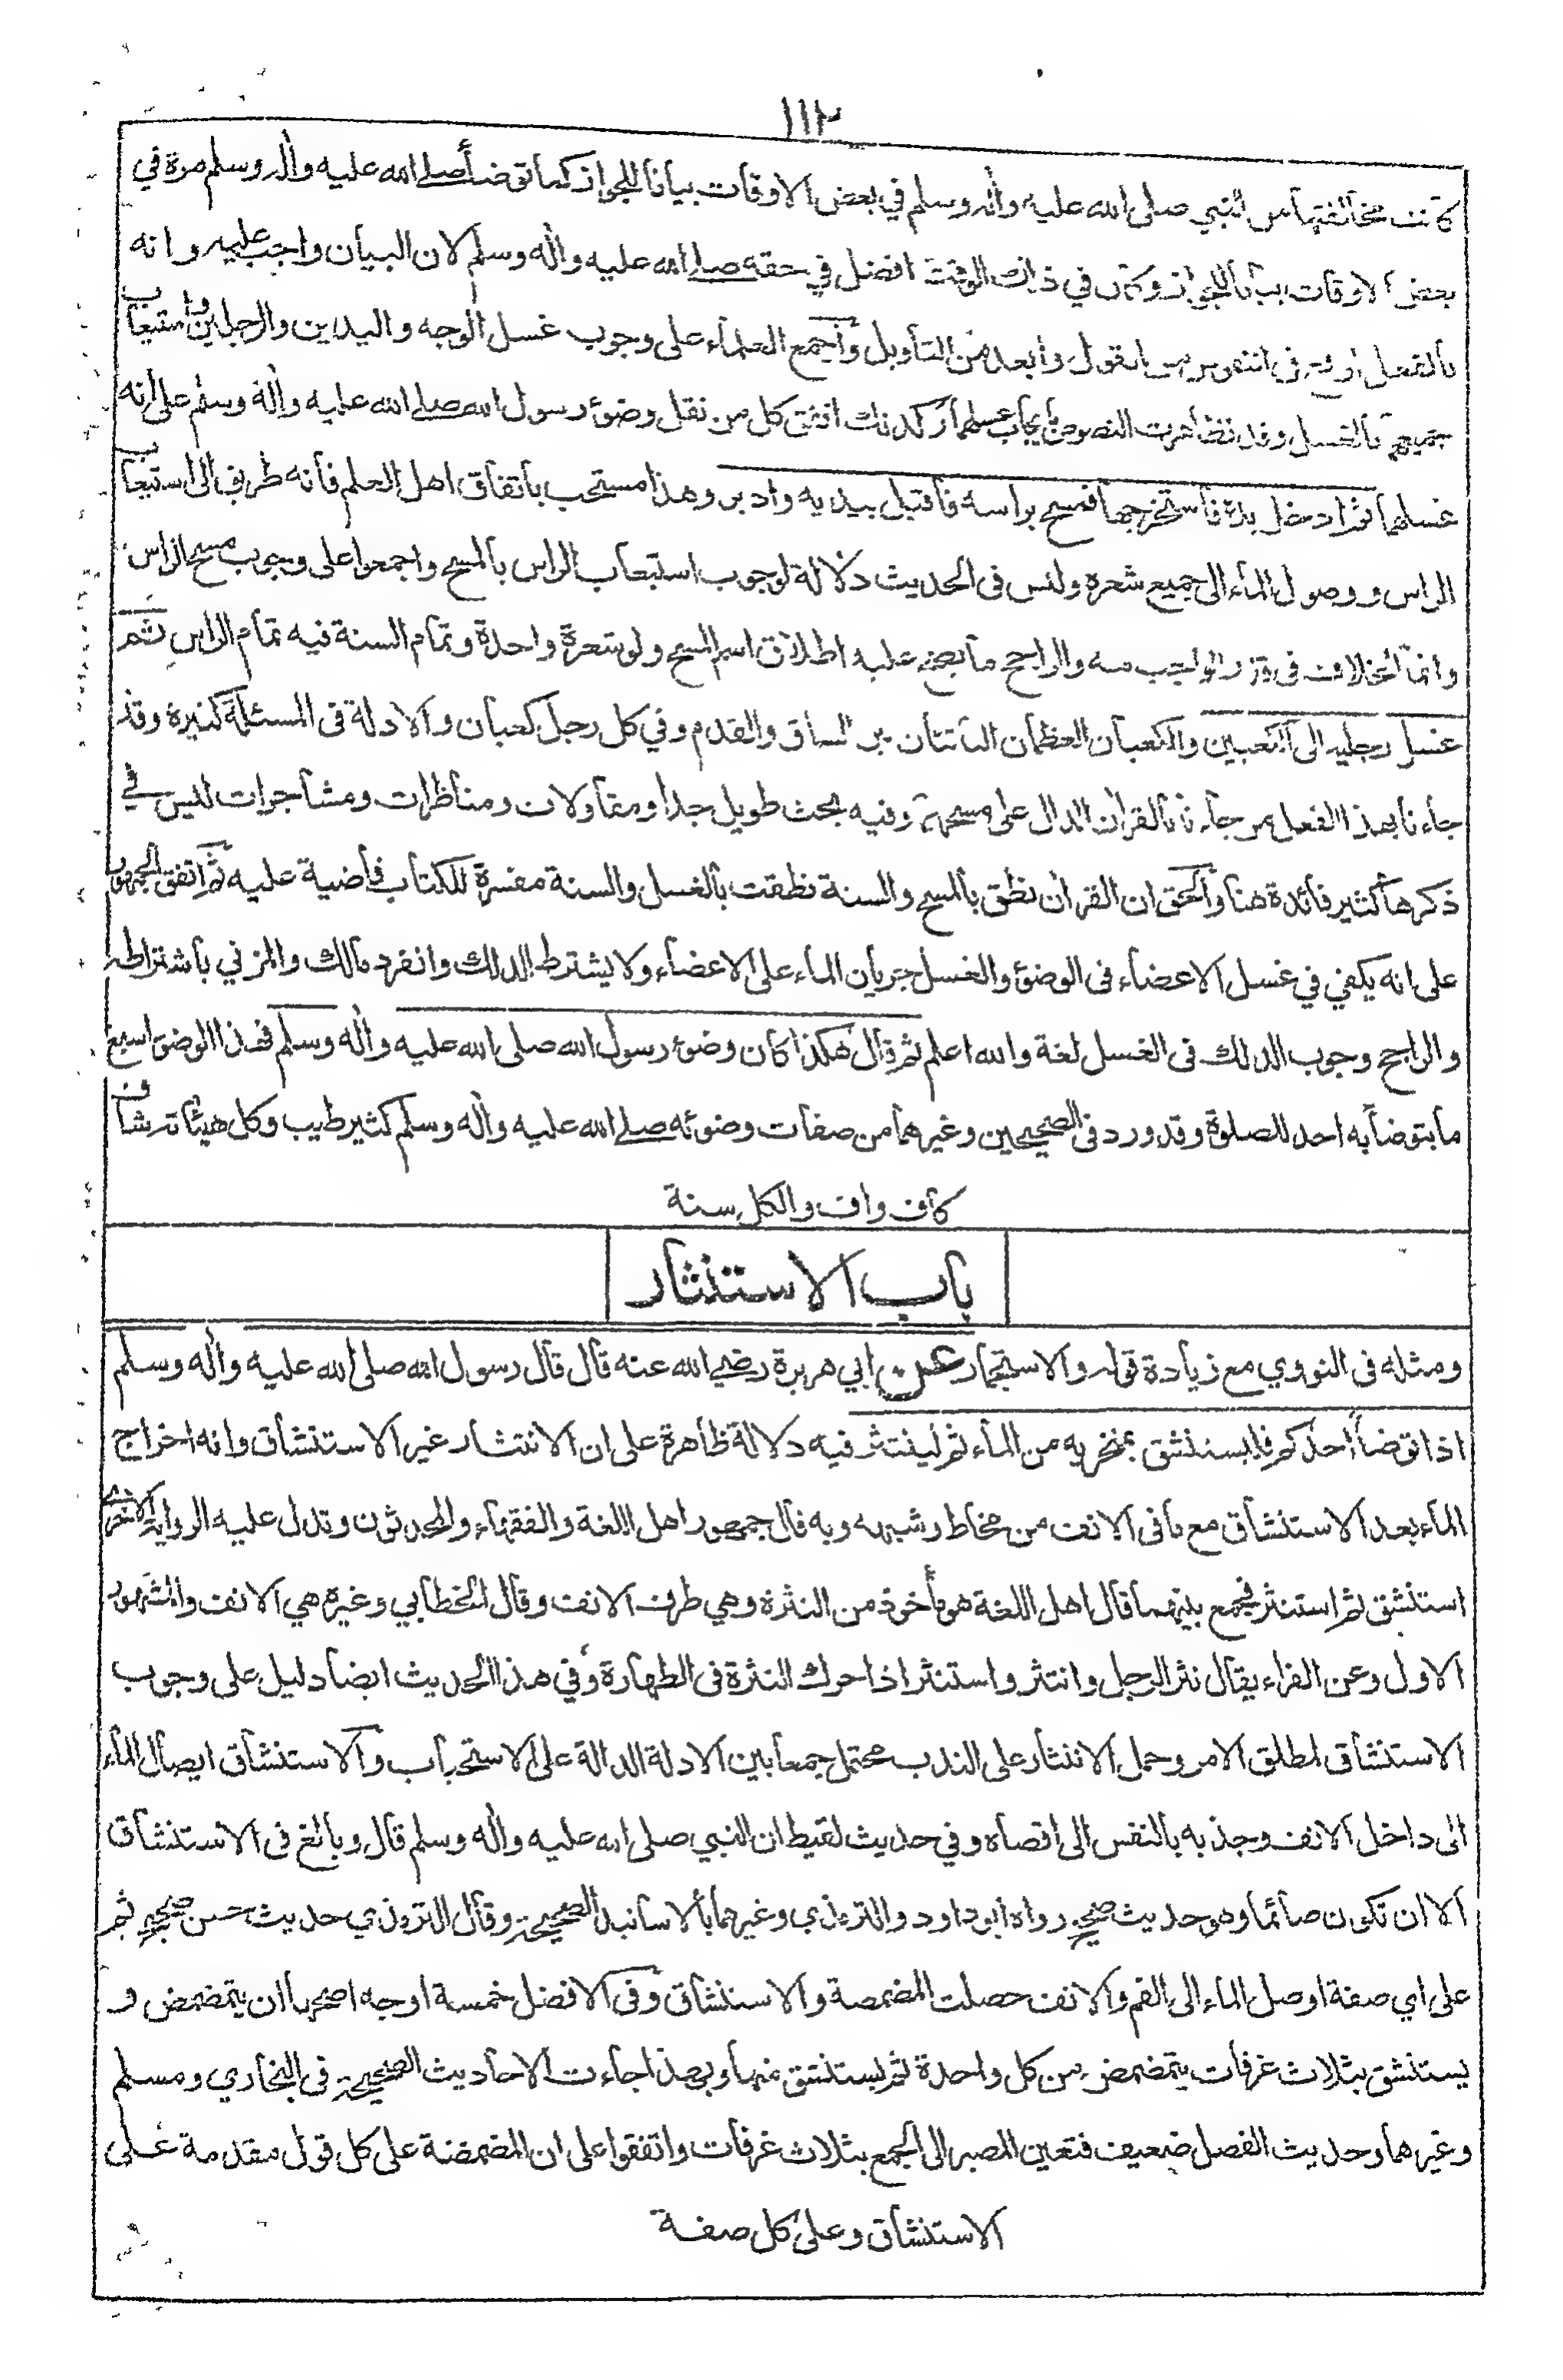 ١١٢
كانت مخالفتها من النبي صلى الله عليه واٰله وسلم في بعض الاوقات بيانا للجواز كما توضأ صلى الله عليه واٰله وسلم مرة في
بعض الاوقات بيانا للجواز وكان في ذلك الوقت افضل في حقه صلى الله عليه واٰله وسلم لان البيان واجب عليه وانه
بالفعل اوقع فى النفوس من القول وابعد من التأويل وأجمع العلماء على وجوب غسل الوجه واليدين والرجلين واستيعاب
جميعهم بالغسل وقد تظاهرت النصوص بايجاب غسلهما وكذلك اتفق كل من نقل وضوء رسول الله صلى الله عليه واٰله وسلم على انه
غسلهما ثم ادخل يده فاستخرجها فمسح براسه فاقبل بيديه وادبر وهذا مستحب باتفاق اهل العلم فانه طريق الى استيعاب
الراس ووصول الماء الى جميع شعره وليس فى الحديث دلالة لوجوب استيعاب الراس بالمسح واجمعوا على وجوب مسح الراس
وانما الخلاف فى قدر الواجب منه والراجح ما يصح عليه اطلاق اسم المسح ولو شعرة واحدة وتمام السنة فيه تمام الراس ثم
غسل رجليه الى الكعبين والكعبان العظمان الناتئان بين الساق والقدم وفي كل رجل كعبان والادلة فى المسئلة كثيرة وقد
جاءنا بهذا الفعل من جاءنا بالقراٰن الدال على مسحهما وفيه بحث طويل جدا ومقاولات ومناظرات ومشاجرات ليس في
ذكرها كثير فائدة هنا والحق ان القراٰن نطق بالمسح والسنة نطقت بالغسل والسنة مفسرة للكتاب قاضية عليه ثم اتفق الجمهور
على انه يكفي في غسل الاعضاء فى الوضوء والغسل جريان الماء على الاعضاء ولا يشترط الدلك وانفرد مالك والمزني باشتراطه
والراجح وجوب الدلك فى الغسل لغة والله اعلم ثم قال هكذا كان وضوء رسول الله صلى الله عليه واٰله وسلم فهذا الوضوء اسبغ
ما يتوضأ به احد للصلوة وقد ورد فى الصحيحين وغيرهما من صفات وضوئه صلى الله عليه واٰله وسلم كثير طيب وكل هيئاته شاف
كاف واف والكل سنة
باب الاستنثار
ومثله فى النووي مع زيادة قوله والاستجمار عن ابي هريرة رضي الله عنه قال قال رسول الله صلى الله عليه واٰله وسلم
اذا توضأ احدكم فليستنشق بمنخريه من الماء ثم لينتثر فيه دلالة ظاهرة على ان الانتثار غير الاستنشاق وانه اخراج
الماء بعد الاستنشاق مع ما فى الانف من مخاط وشبهه وبه قال جمهور اهل اللغة والفقهاء والمحدثون وتدل عليه الرواية الاخرى
استنشق ثم استنثر فجمع بينهما قال اهل اللغة هو مأخوذ من النثرة وهي طرف الانف وقال الخطابي وغيره هي الانف والمشهور
الاول وعن الفراء يقال نثر الرجل وانتثر واستنثر اذا حرك النثرة فى الطهارة وفي هذا الحديث ايضا دليل على وجوب
الاستنشاق لمطلق الامر وحمل الانتثار على الندب محتمل جمعا بين الادلة الدالة على الاستحباب والاستنشاق ايصال الماء
الى داخل الانف وجذبه بالنفس الى اقصاه وفي حديث لقيط ان النبي صلى الله عليه واٰله وسلم قال وبالغ فى الاستنشاق
الا ان تكون صائما وهو حديث صحيح رواه ابوداود والترمذي وغيرهما بالاسانيد الصحيحة وقال الترمذي حديث حسن صحيح ثم
على اي صفة اوصل الماء الى الفم والانف حصلت المضمضة والاستنشاق وفى الافضل خمسة اوجه اصحها ان يتمضمض و
يستنشق بثلاث غرفات يتمضمض من كل واحدة ثم يستنشق منها وبهذا جاءت الاحاديث الصحيحة فى البخاري ومسلم
وغيرهما وحديث الفصل ضعيف فتعين المصير الى الجمع بثلاث غرفات واتفقوا على ان المضمضة على كل قول مقدمة على
الاستنشاق وعلى كل صفة